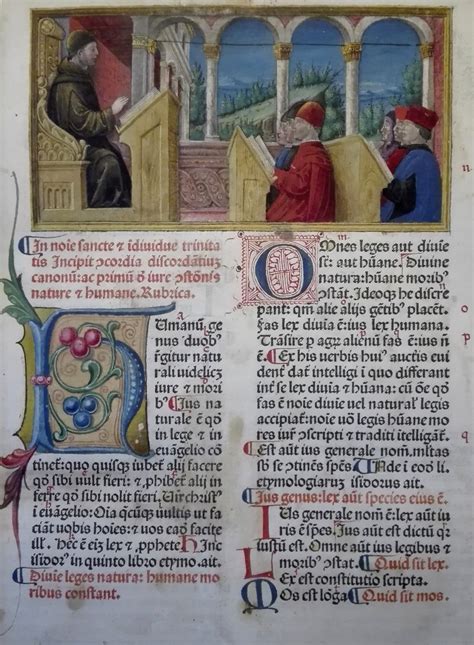 In noĩe sancte ⁊ ĩdiuidue trinita
tis Incipit ꝯcordia discordãtium
canonũ: ac primũ ð iure ꝯstõnis
nature ⁊ humane. Rubrica.
HUmanũ ge
nus duobꝰ
regitur natu
rali uidelicꝫ
iure ⁊ moribꝰ
Ius natu
rale ẽ qð
in lege ⁊ in
euãgelio cõ
tinet᷑: quo quisqꝫ iubet᷑ alij facere
qð sibi uult fieri: ⁊ ꝓhibet᷑ alij in
ferre qð sibi nolit fieri. Uñ christꝰ
i euãgelio: Oĩa q̃cũqꝫ uultis ut fa
ciant uobis hoĩes: ⁊ uos eaд facite
ill᷑. Hec ẽ eĩ lex ⁊ ꝓphete Hinc
isidorꝰ in quinto libro etymo. ait.
Diuĩe leges natura: humane mo
ribus constant.
OMnes leges aut diuĩe
sũt: aut hũane. Diuine
natura: hũane moribꝰ
ꝯstãt. Ideoqꝫ he discre
pant: qm̃ alie alijs gẽtibꝰ placẽt.
Fas lex diuĩa ẽ: ius lex humana.
Trãsire ꝑ agꝝ alienũ: fas ẽ ius nõ
ẽ. Ex his uerbis huiꝰ auctis eui
dent᷑ dat᷑ intelligi i quo differant
int᷑ se lex diuĩa ⁊ hũana: cũ oẽ qð
fas ẽ noĩe diuĩe uel natural᷑ legis
accipiat᷑: noĩe uo᷑ legis hũane mo
res iure ꝯscripti ⁊ traditi ĩtelligãt᷑.
Est aũt ius generale nomẽ: ml᷑tas
sб se ꝯtinẽs spẽs. Uñde i eoð li.
etymologiarum isidorus ait.
Ius genus: lex aũt species eius ẽ.
IUs generale nomẽ ẽ: lex aũt iu
ris ẽ spẽs. Ius aũt ẽ dictũ qꝛ
iustũ est. Omne aũt ius legibus ⁊
moribꝰ ꝯstat. Quid sit lex.
LEx est constitutio scripta.
MOs est lõga Quid sit mos.